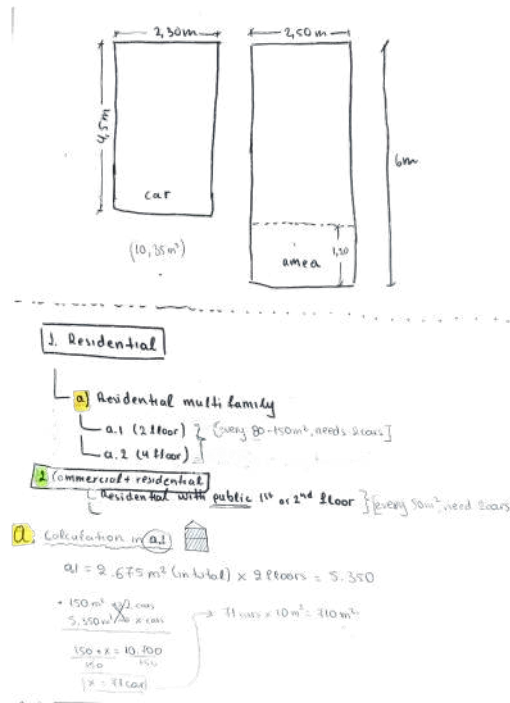 2,30m
2,50m
4,5m
6m
car
(10,35m²)
1,20
amea
1. Residential
a) Residential multi family
a.1 (2 floor) } [every 80-150m², needs 2cars]
a.2 (4 floor)
2 Commercial + residential
Residential with public 1st or 2nd floor } [every 50m², need 2cars
a. Calculation in a.1
a1 = 2.675 m² (in total) × 2 floors = 5.350
150m² 2 cars
5.350m² x cars
71 cars × 10m² = 710m²
150 * x = 10.700
150 150
x = 71 car